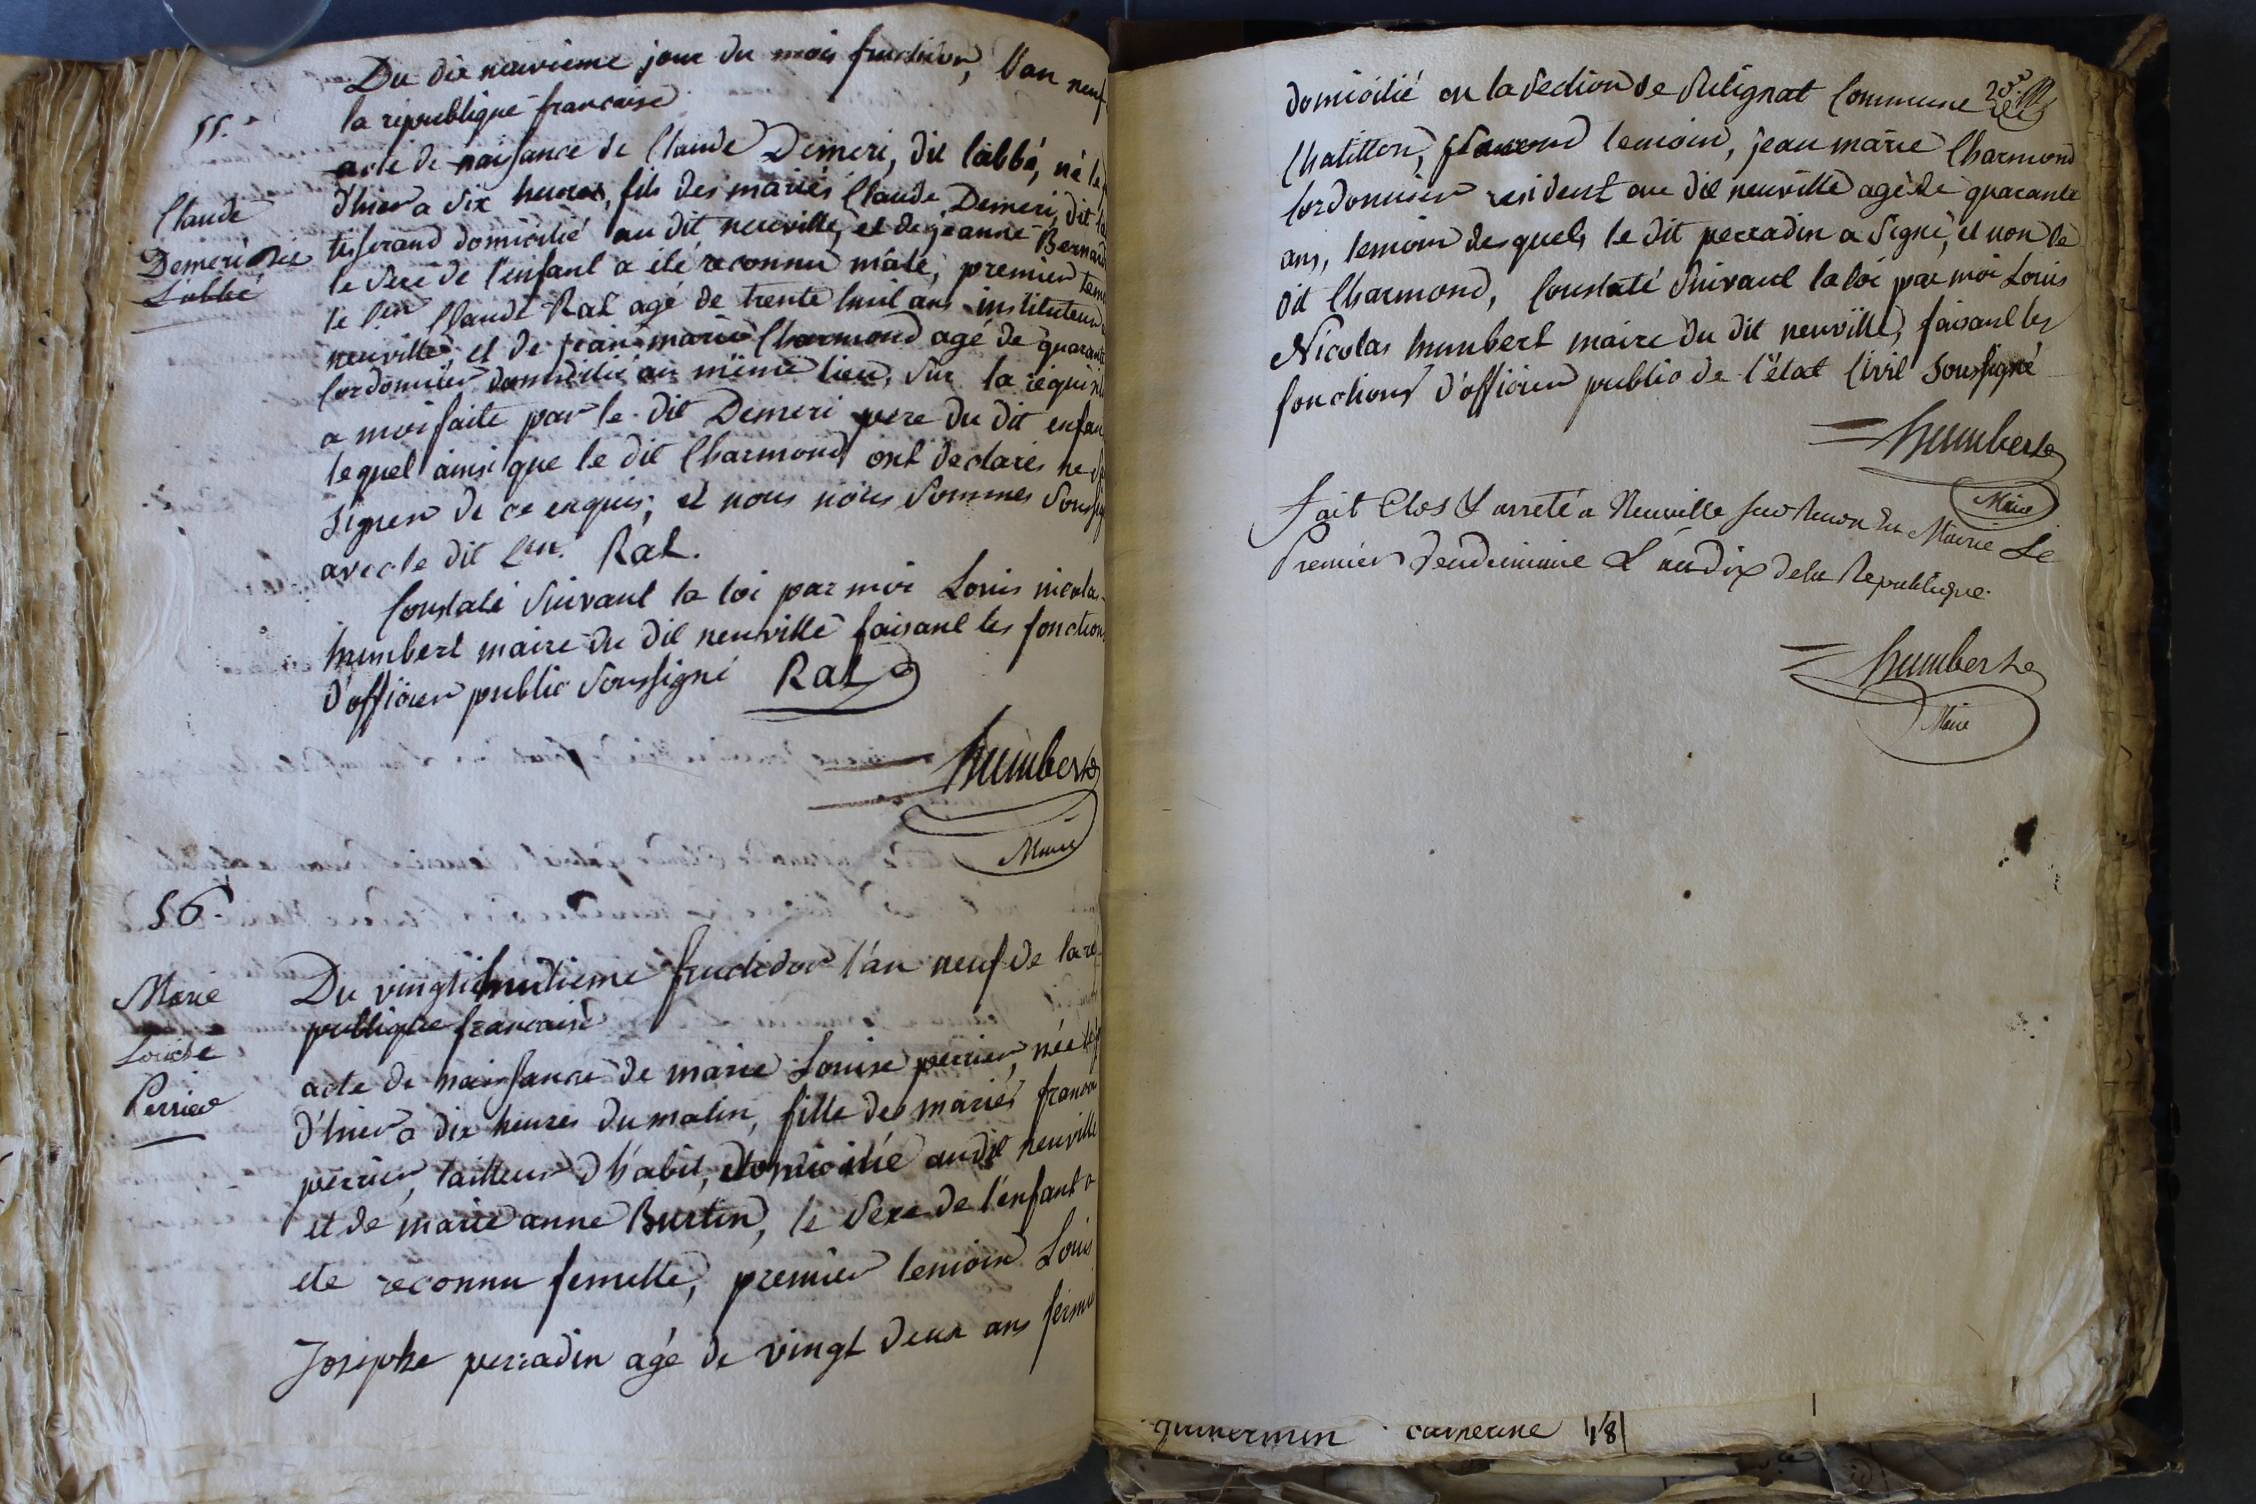 Du dix neuvieme jour du mois fructidor, l'an neuf
la république francaise
55.
acte de naissance de Claude Demeri, dit labbé, né le
d'hier a six heures, fils des mariés Claude Demeri, dit
Claude
Demeri dit
Labbé
tisserand domicilié au dit neuville, et de jeanne Bernard
le sexe de l'enfant a été reconnu mâle, premier
le Cen Claude Rat agé de trente huit ans instituteur
neuville, et de jean marie Charmond agé de quarante
Cordonnier domicilié au même lieu, sur la
a moi faite par le dit Demeri pere du dit enfan
lequel ainsi que le dit Charmond ont declarés ne
signer de ce enquis; et nous nous sommes
avec le dit Cen. Rat.
Constaté suivant la loi par moi Louis nicolas
humbert maire du dit neuville faisant les fonctions
d'officier public soussigné Rat
humbert
Maire
56.
Marie
Louise
Perrier
Du vingt huitieme fructidor l'an neuf de la ré
publique francaise
acte de naissance de marie Louise perrier, née
d'hier a dix heures du matin, fille des mariés
perrier, tailleur d'habit, domicilié audit neuville
et de marie anne Burtin, le sexe de l'enfant a
ete reconnu femelle, premier temoin Louis
Josephe perradin agé de vingt deux ans
domicilié en la section de Commune
Chatillon, second temoin, jean marie Charmond
Cordonnier resident au dit neuville agé de quarante
ans, temoin desquels le dit perradin a signé, et non le
dit Charmond, Constaté suivant la loi par moi Louis
Nicolas humbert maire du dit neuville, faisant les
fonctions d'officier public de l'état Civil soussigné
humbert
Maire
fait Clos & arreté a Neuville sur Renon en Mairie Le
Premier Vendemiaire L'an dix de la Republique.
humbert
Maire